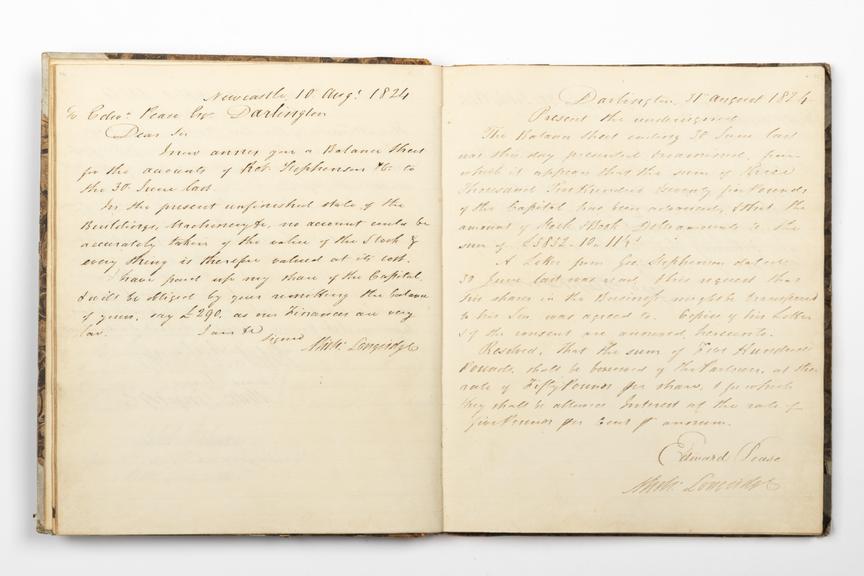 Newcastle 10 Augt 1824
To Edwd Pease Esqr Darlington
Dear Sir
I now annex you a Balance Sheet
for the accounts of Robt Stephenson &Co to
the 30 June last
In the present unfinished state of the
Buildings, Machinery &c, no account could be
accurately taken of the value of the Stock &
every thing is therefore valued at its cost.
I have paid up my share of the Capital
& will be obliged by your remitting the balance
of yours, say £290, as our Finances are very
low. I am &c
signed
Michl Longridge
Darlington, 31 August 1824
Present the undersigned
The Balance Sheet ending 30 June last
was this day presented & examined, from
which it appears that the sum of Three
Thousand Five Hundred & twenty five Pounds
of the Capital has been advanced, & that the
amount of Stock & Book Debts amounts to the
sum of £3832 - 10 - 11½
A Letter from Geo Stephenson dated
30 June last was read, & his request that
his shares in the Business might be transferred
to his Son was agreed to. Copies of his Letter
& of the consent are annexed hereunto.
Resolved, that the sum of Five Hundred
Pounds, shall be borrowed of the Partners, at the
rate of Fifty Pounds per share, & for which
they shall be allowed Interest at the rate of
Five Pounds per Cent pr annum.
Edward Pease
Michl Longridge